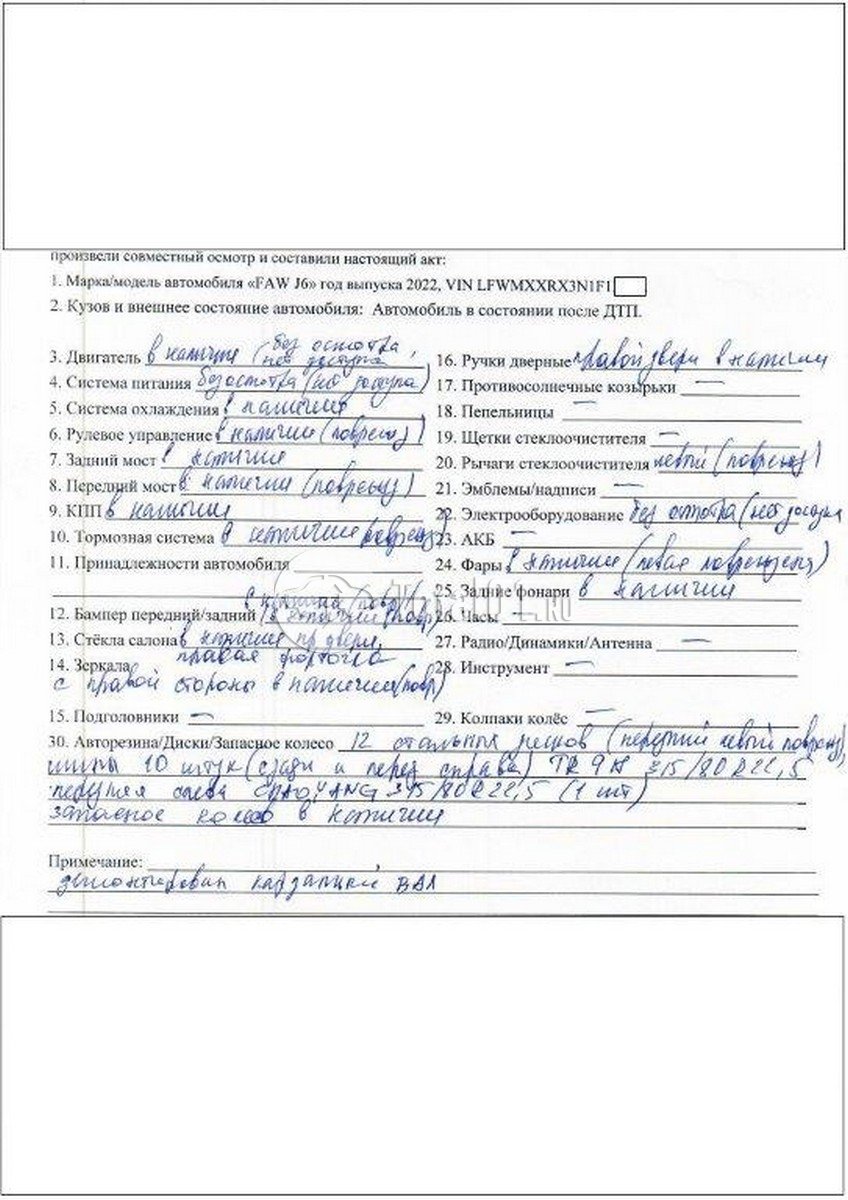 произвели совместный осмотр и составили настоящий акт:
1. Марка/модель автомобиля «FAW J6» год выпуска 2022, VIN LFWMXXRX3N1F1
2. Кузов и внешнее состояние автомобиля: Автомобиль в состоянии после ДТП.
3. Двигатель в наличие (без осмотра, нет доступа
4. Система питания без осмотра (нет доступа)
5. Система охлаждения в наличии
6. Рулевое управление в наличии (поврежд)
7. Задний мост в наличии
8. Передний мост в наличии (поврежд)
9. КПП в наличии
10. Тормозная система в наличии поврежд)
11. Принадлежности автомобиля
12. Бампер передний/задний в наличии (повр) / в наличии (повр)
13. Стёкла салона в наличие пр двери,
правая форточка
14. Зеркала
с правой стороны в наличии (повр)
15. Подголовники —
16. Ручки дверные правой двери в наличии
17. Противосолнечные козырьки —
18. Пепельницы —
19. Щетки стеклоочистителя —
20. Рычаги стеклоочистителя левый (поврежд)
21. Эмблемы/надписи —
22. Электрооборудование без осмотра (нет доступа
23. АКБ —
24. Фары в наличии (левая повреждена)
25. Задние фонари в наличии
26. Часы —
27. Радио/Динамики/Антенна —
28. Инструмент —
29. Колпаки колёс —
30. Авторезина/Диски/Запасное колесо 12 стальных дисков (передний левый поврежд),
шины 10 штук (сзади и перед справа) 315/80R22,5
передняя слева CHAOYANG 315/80R22,5 (1 шт)
запасное колесо в наличии
Примечание:
демонтирован карданный вал